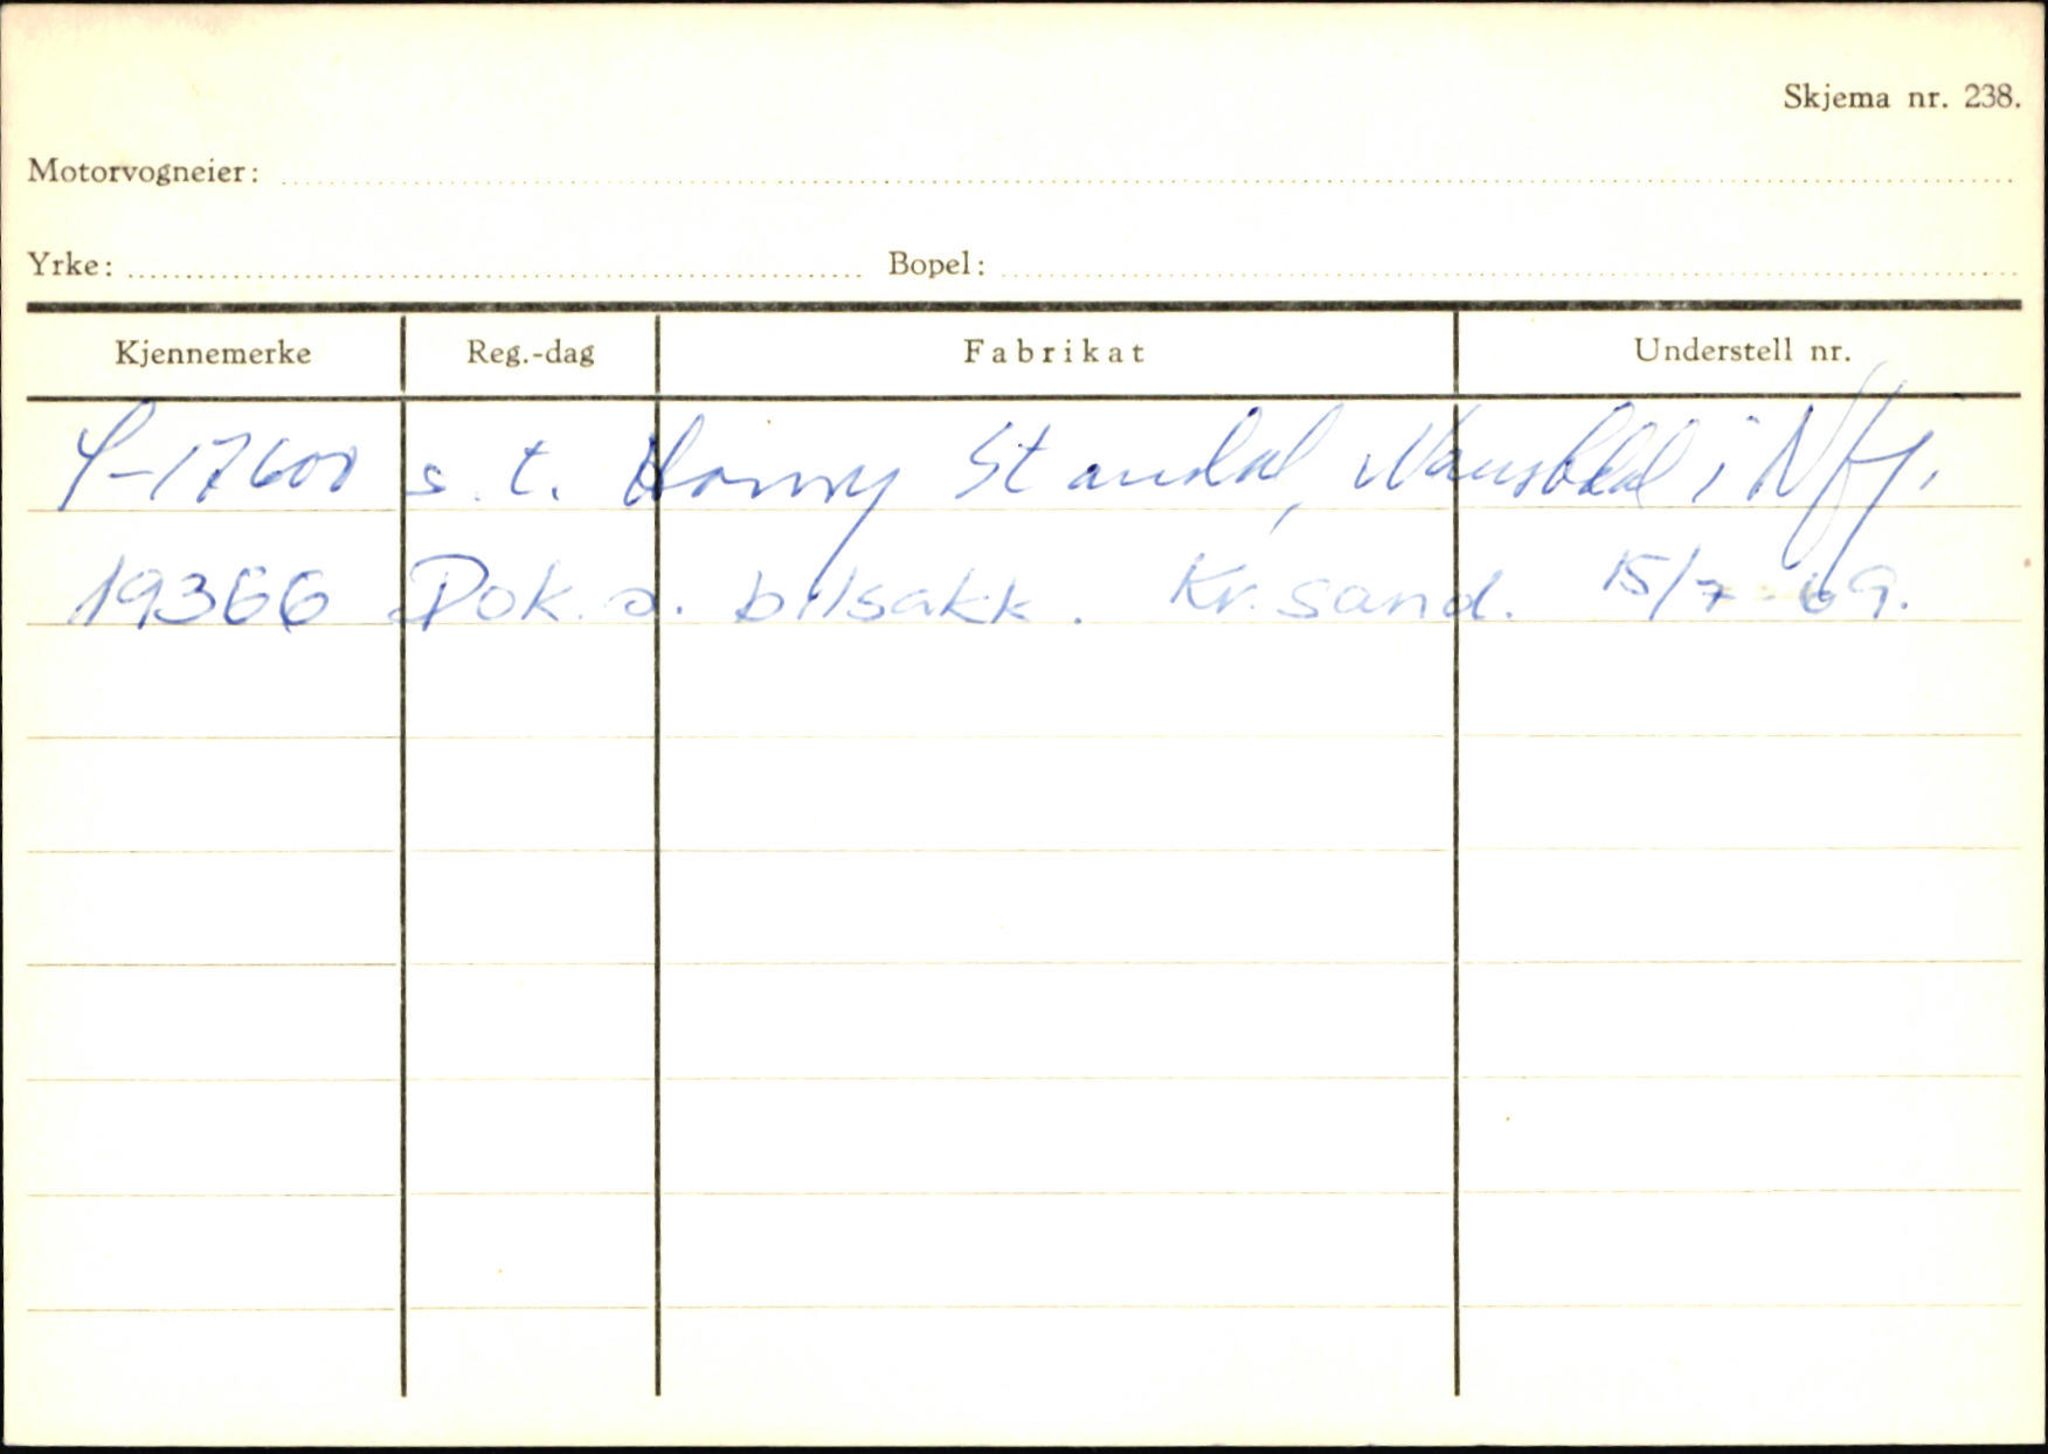 Skjema nr. 238.
Motorvogneier:
Yrke: Bopel:
Kjennemerke Reg.-dag Fabrikat Understell nr.
S-17600 s. t. Standal, i Nfj.
19366 Dok. a. bilsakk. Kr.sand. 15/7-69.